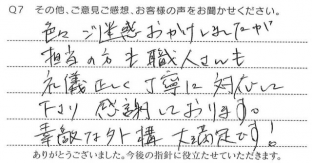 Q7 その他、ご意見ご感想、お客様の声をお聞かせください。
色々ご迷惑おかけしましたが
担当の方も職人さんも
礼儀正しく丁寧に対応して
下さり感謝しております。
素敵な外構 大満足です!
ありがとうございました。今後の指針に役立たせていただきます。